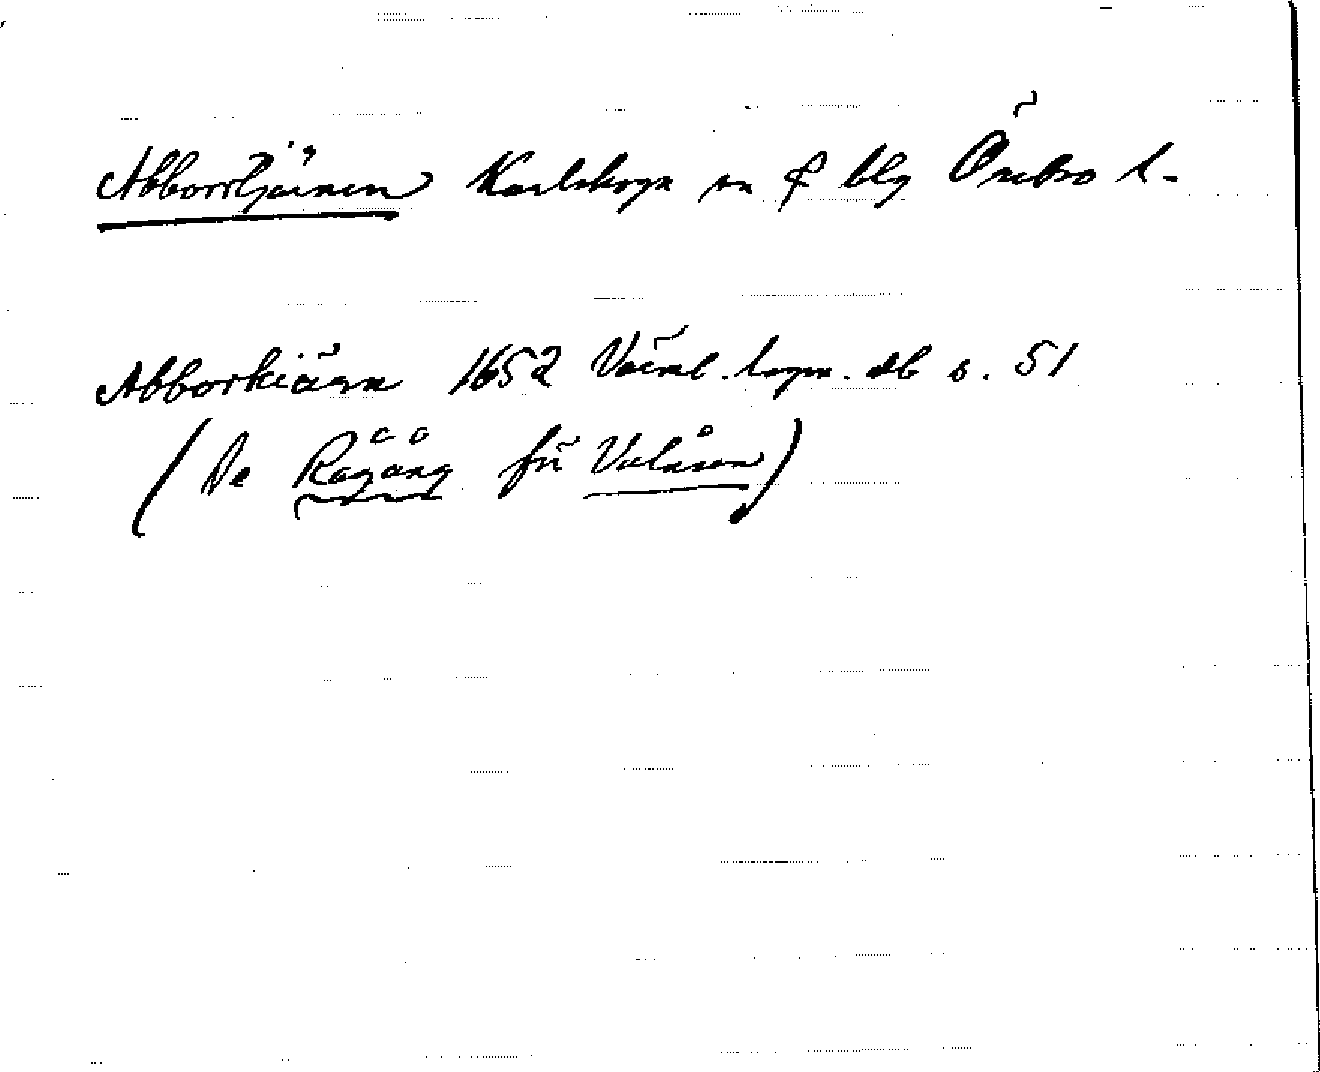 Abborrtjärnen Karlskoga sn f blg Örebro l.
Abborkiärn 1652 Värml. lagm. db s. 51
(Se Rågång fr Valåsen)